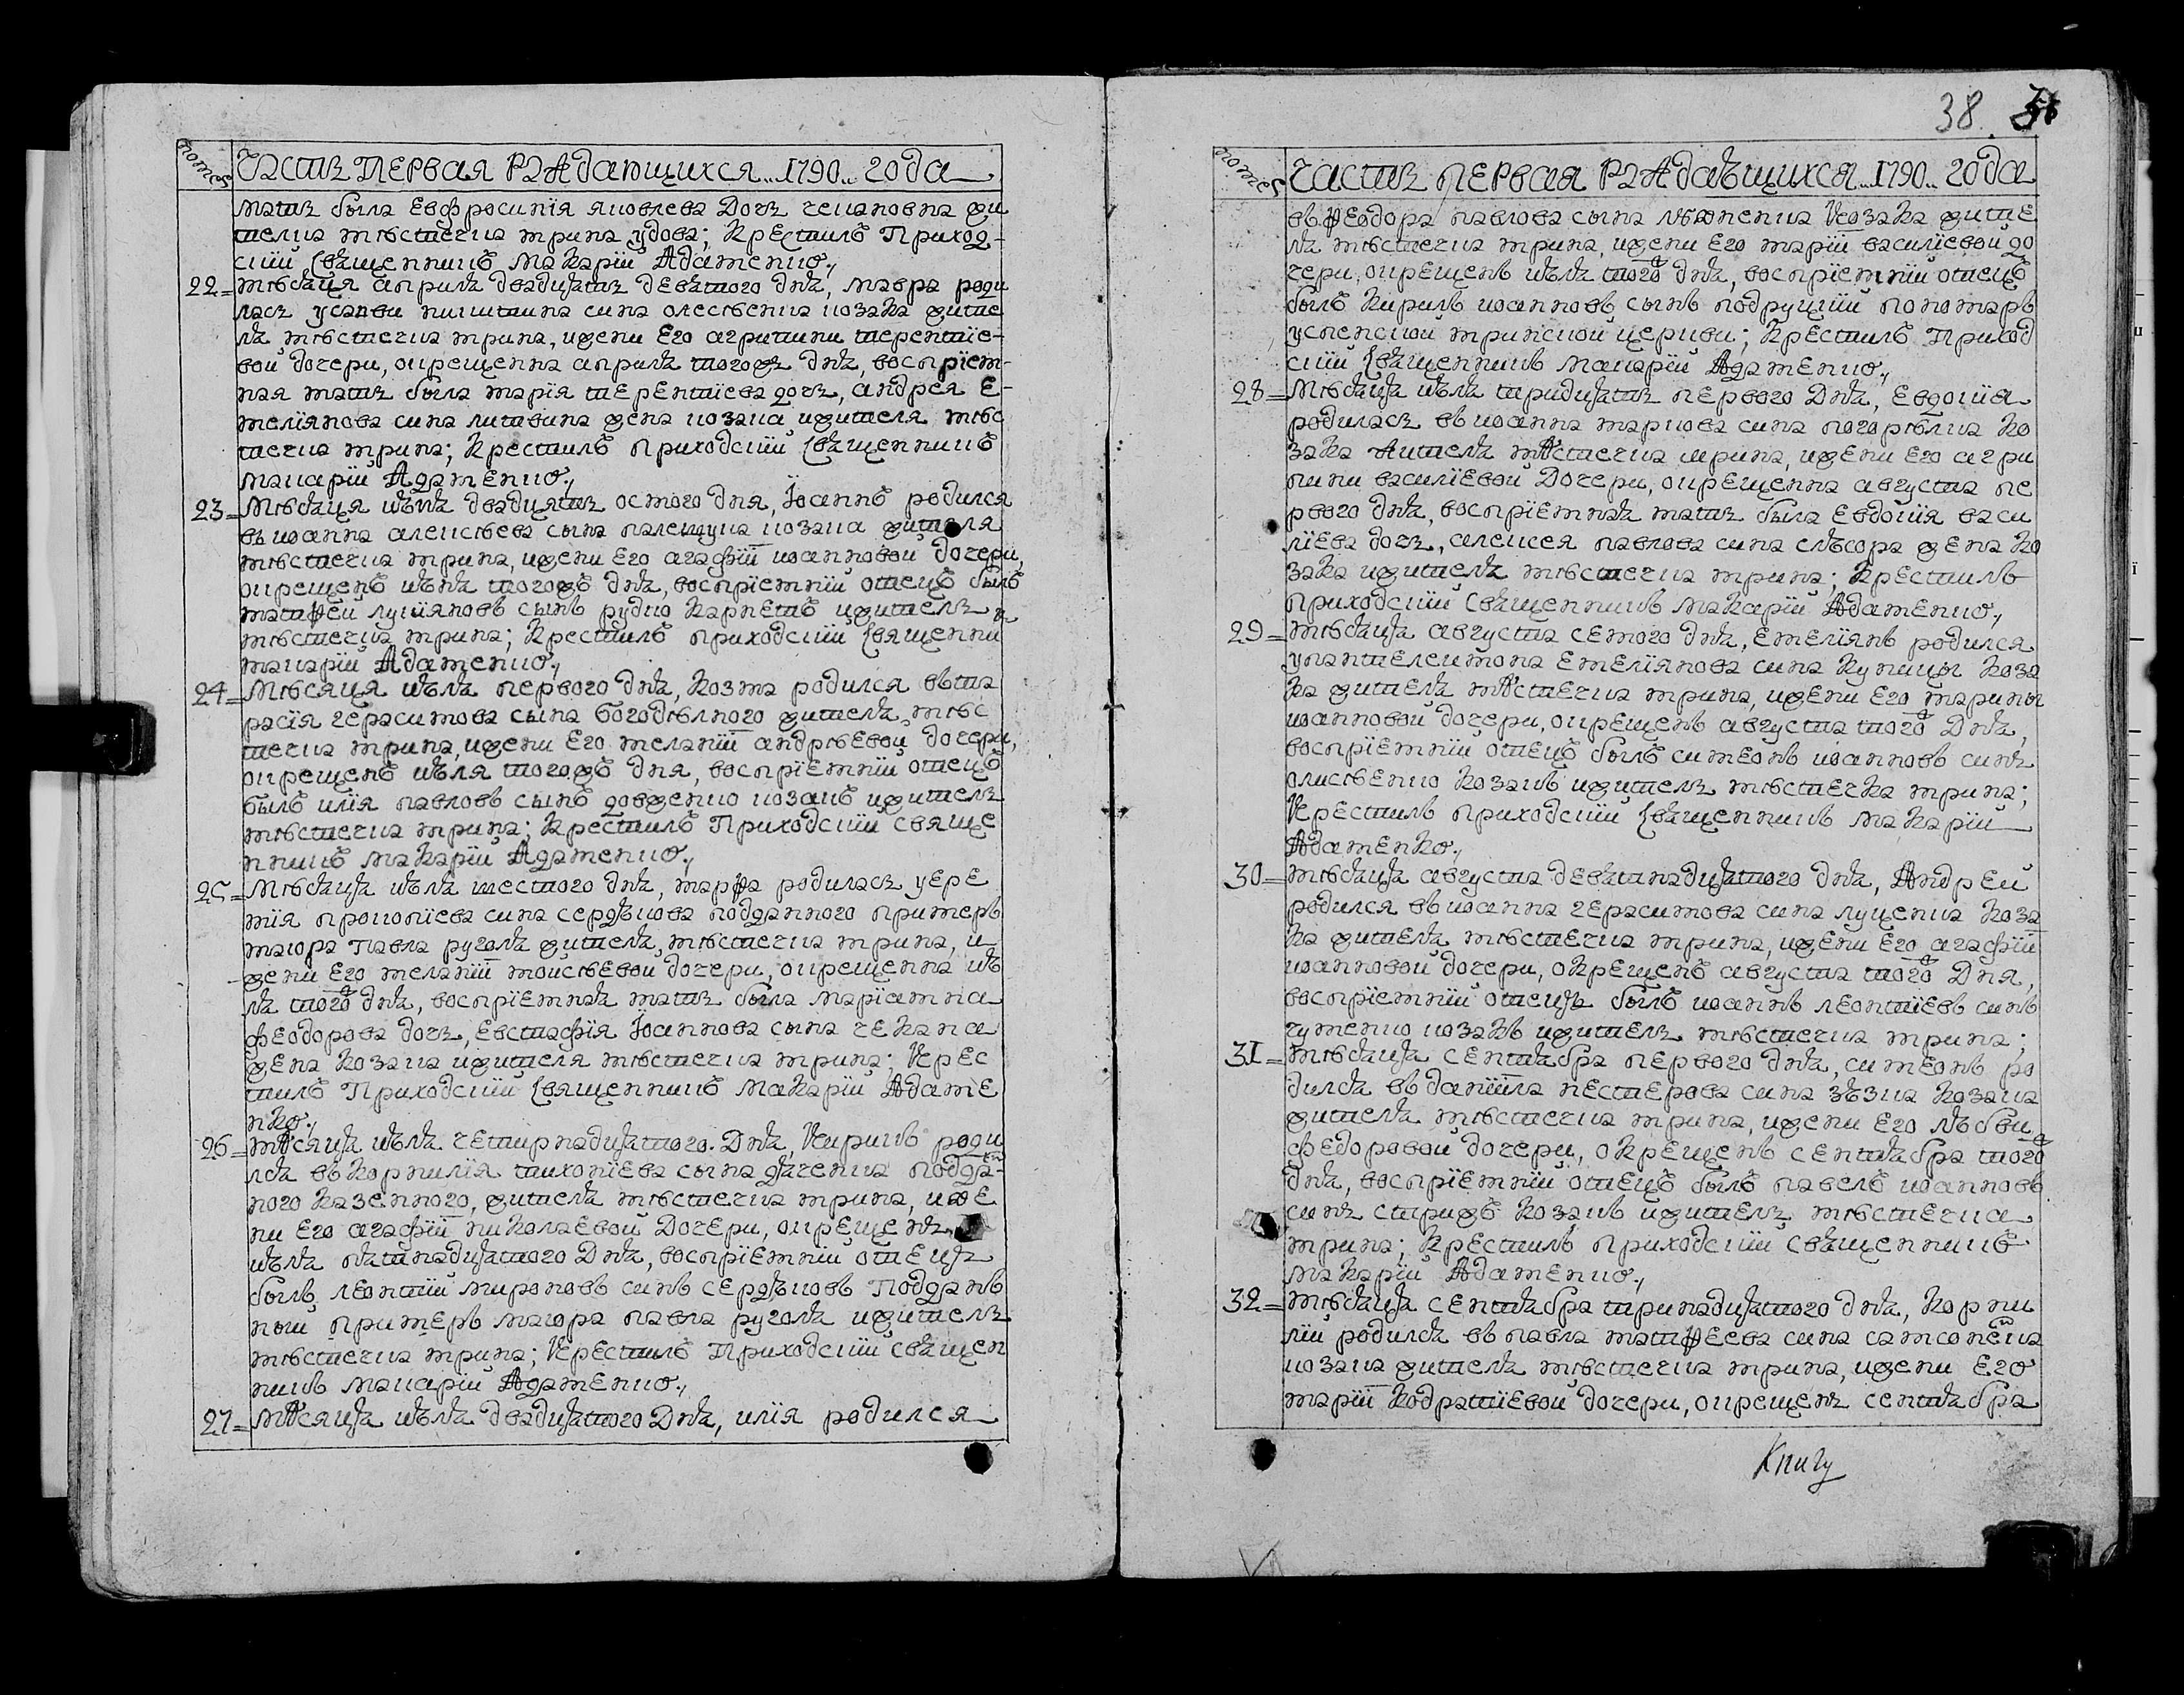 номеръ Часть первая раждающихся 1790 года
мать была Евфросинїя яковлева дочь чепановна жи
телка мѣстечка ирина удова; крестилъ приход-
скїй священникъ макарїй Адаменко,
22= мѣсяця априля двадцять девятого дня, мавра роди
лась усавви никитина сина олесвенка козака жите
ля мѣстечка ирина, и жени его агрипини терентїе-
вои дочери, окрещенна априля того ж дня, воспрїем-
ная мать была марїя терентїева дочь, андрея е-
мелїянова сина литвина жена козака жителя мѣс
течка ирина; крестилъ приходскїй священникъ
макарїй Адаменко,
23= Мѣсяця июня двадцять осмого дня, Їоаннъ родился
въ иоанна алексѣева сына палещука козака жителя
мѣстечка ирина, и жени его агафїи иоанновои дочери,
окрещенъ июня того жъ дня, воспрїемнїй отецъ былъ
матфей лукїяновъ сынъ рудко карпетъ житель
мѣстечка ирина; крестилъ приходскїй священникъ
макарїй Адаменко,
24= Мѣсяця июля первого дня, козма родился въ та
расїя герасимова сына богодѣлного жителя мѣс
течка ирина, и жени его меланїи андрѣевои дочери,
окрещенъ июля того жъ дня, воспрїемнїй отецъ
былъ илїя павловъ сынъ довженко козакъ житель
мѣстечка ирина; крестилъ приходскїй свяще
нникъ макарїй Адаменко,
25= Мѣсяця июля шестого дня, марфа родилась у ере
мїя прокопїева сина сердюкова подданного примеръ
маюра павла руголя жителя мѣстечка ирина, и
жени его меланїи моисѣевои дочери, окрещенна ию
ля того ж дня, воспрїемная мать была марїамна
феодорова дочь, евстафїя їоаннова сына чекана
жена козака жителя мѣстечка ирина; крес
тилъ приходскїй священникъ макарїй Адаме
нко,
26= мѣсяця июля четирнадцятого дня, кирикъ роди
лся въ корнилїя тихонїева сына дяченка подда-
ного казенного, жителя мѣстечка ирина, и же
ни его агафїи николаевои дочери, окрещенъ
июля пятнадцятого дня, воспрїемнїй отець
былъ леонтїй мироновъ синъ сердюковъ поддан
ни примеръ маюра павла руголя житель
мѣстечка ирина; крестилъ приходскїй священ
никъ макарїй Адаменко,
27= мѣсяця июля двадцятого дня, илїя родился
38
номеръ Часть первая раждаьщихся 1790 года
въ феодора павлова сына козака жите
ля мѣстечка ирина, и жени его марїи василїевои до
чери, окрещенъ июля того ж дня, воспрїемнїй отецъ
былъ кирилъ иоанновъ сынъ подруцкїй пономарь
успенскои иринскои церкви; крестилъ приход
скїй священникъ макарїй Адаменко,
28= Мѣсяця июля тридцять первого дня, евдокїя
родилась въ иоанна маркова сина погорѣлка ко
зака жителя мѣстечка ирина, и жени его агри
пини василїевои дочери, окрещенна августа пе
рвого дня, воспрїемная мать была евдокїя васи
лїева дочь, алексея павлова сина слюсора жена ко
зака жителя мѣстечка ирина; крестилъ
приходскїй священникъ макарїй Адаменко,
29= мѣсяця августа семого дня, емелїянъ родился
у пантелеимона емелїянова сина купици коза
ка жителя мѣстечка ирина, и жени его марины
иоанновои дочери, окрещенъ августа того ж дня,
воспрїемнїй отецъ былъ симеонъ иоанновъ синъ
олисвенко козакъ житель мѣстечка ирина;
крестилъ приходскїй священникъ макарїй
Адаменко,
30= мѣсяця августа девятнадцятого дня, Андрей
родился въ иоанна герасимова сина луценка коза
ка жителя мѣстечка ирина, и жени его агафїи
иоанновои дочери, окрещенъ августа того ж дня,
воспрїемнїй отець былъ иоаннъ леонтїевъ синъ
чуменко козакъ житель мѣстечка ирина;
31= мѣсяця сентября первого дня, симеонъ ро
дился въ данїила нестерова сина зюзка козака
жителя мѣстечка ирина, и жени его любви
федоровои дочери, окрещенъ сентября того ж
дня, воспрїемнїй отецъ былъ павелъ иоанновъ
синъ стрижъ козакъ житель мѣстечка
ирина; крестилъ приходскїй священникъ
макарїй Адаменко,
32= мѣсяця сентября тринадцятого дня, корни
лїй родился въ павла матфеева сина самсоненка
козака жителя мѣстечка ирина, и жени его
марїи кодратїевои дочери, окрещенъ сентября
Книгу